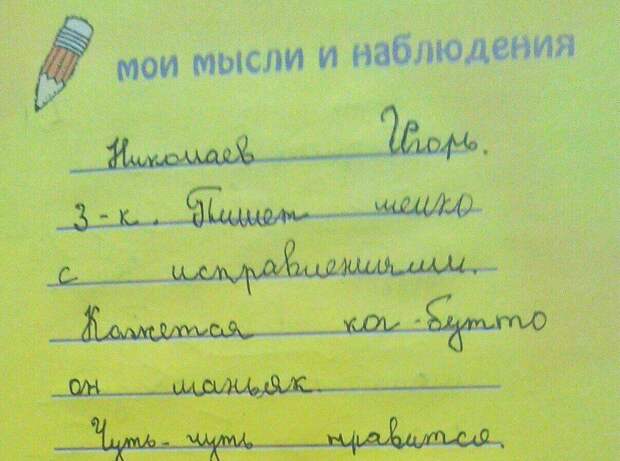 мои мысли и наблюдения
Николаев Игорь.
3-к. Пишет мелко
с исправлениями.
Кажетая ког-бутто
он маньяк.
Чуть-чуть нравится.